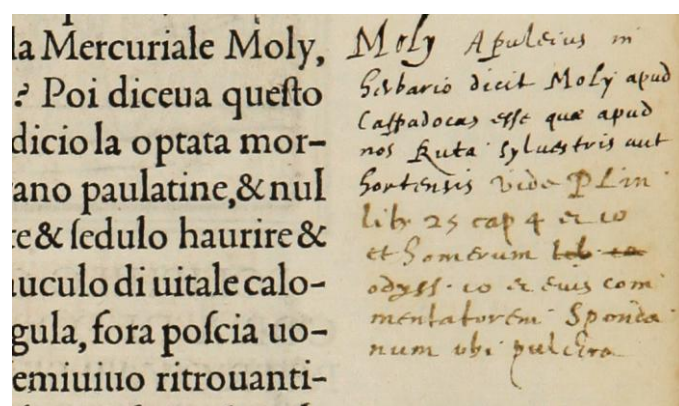 la Mercuriale Moly,
.? Poi diceua queſto
dicio la optata mor-
ano paulatine,& nul
re & ſedulo haurire &
uculo di uitale calo-
gula, fora poſcia uo-
emiuiuo ritrouanti-
Moly Apuleius in
herbario dicit Moly apud
Cappadocas esse quæ apud
nos Ruta sylvestris aut
hortensis vide Plin
lib 25 cap 4 et 10
et homerum lib
odyss. 10 et eius com
mentatorem Sponda
num ubi pulchra